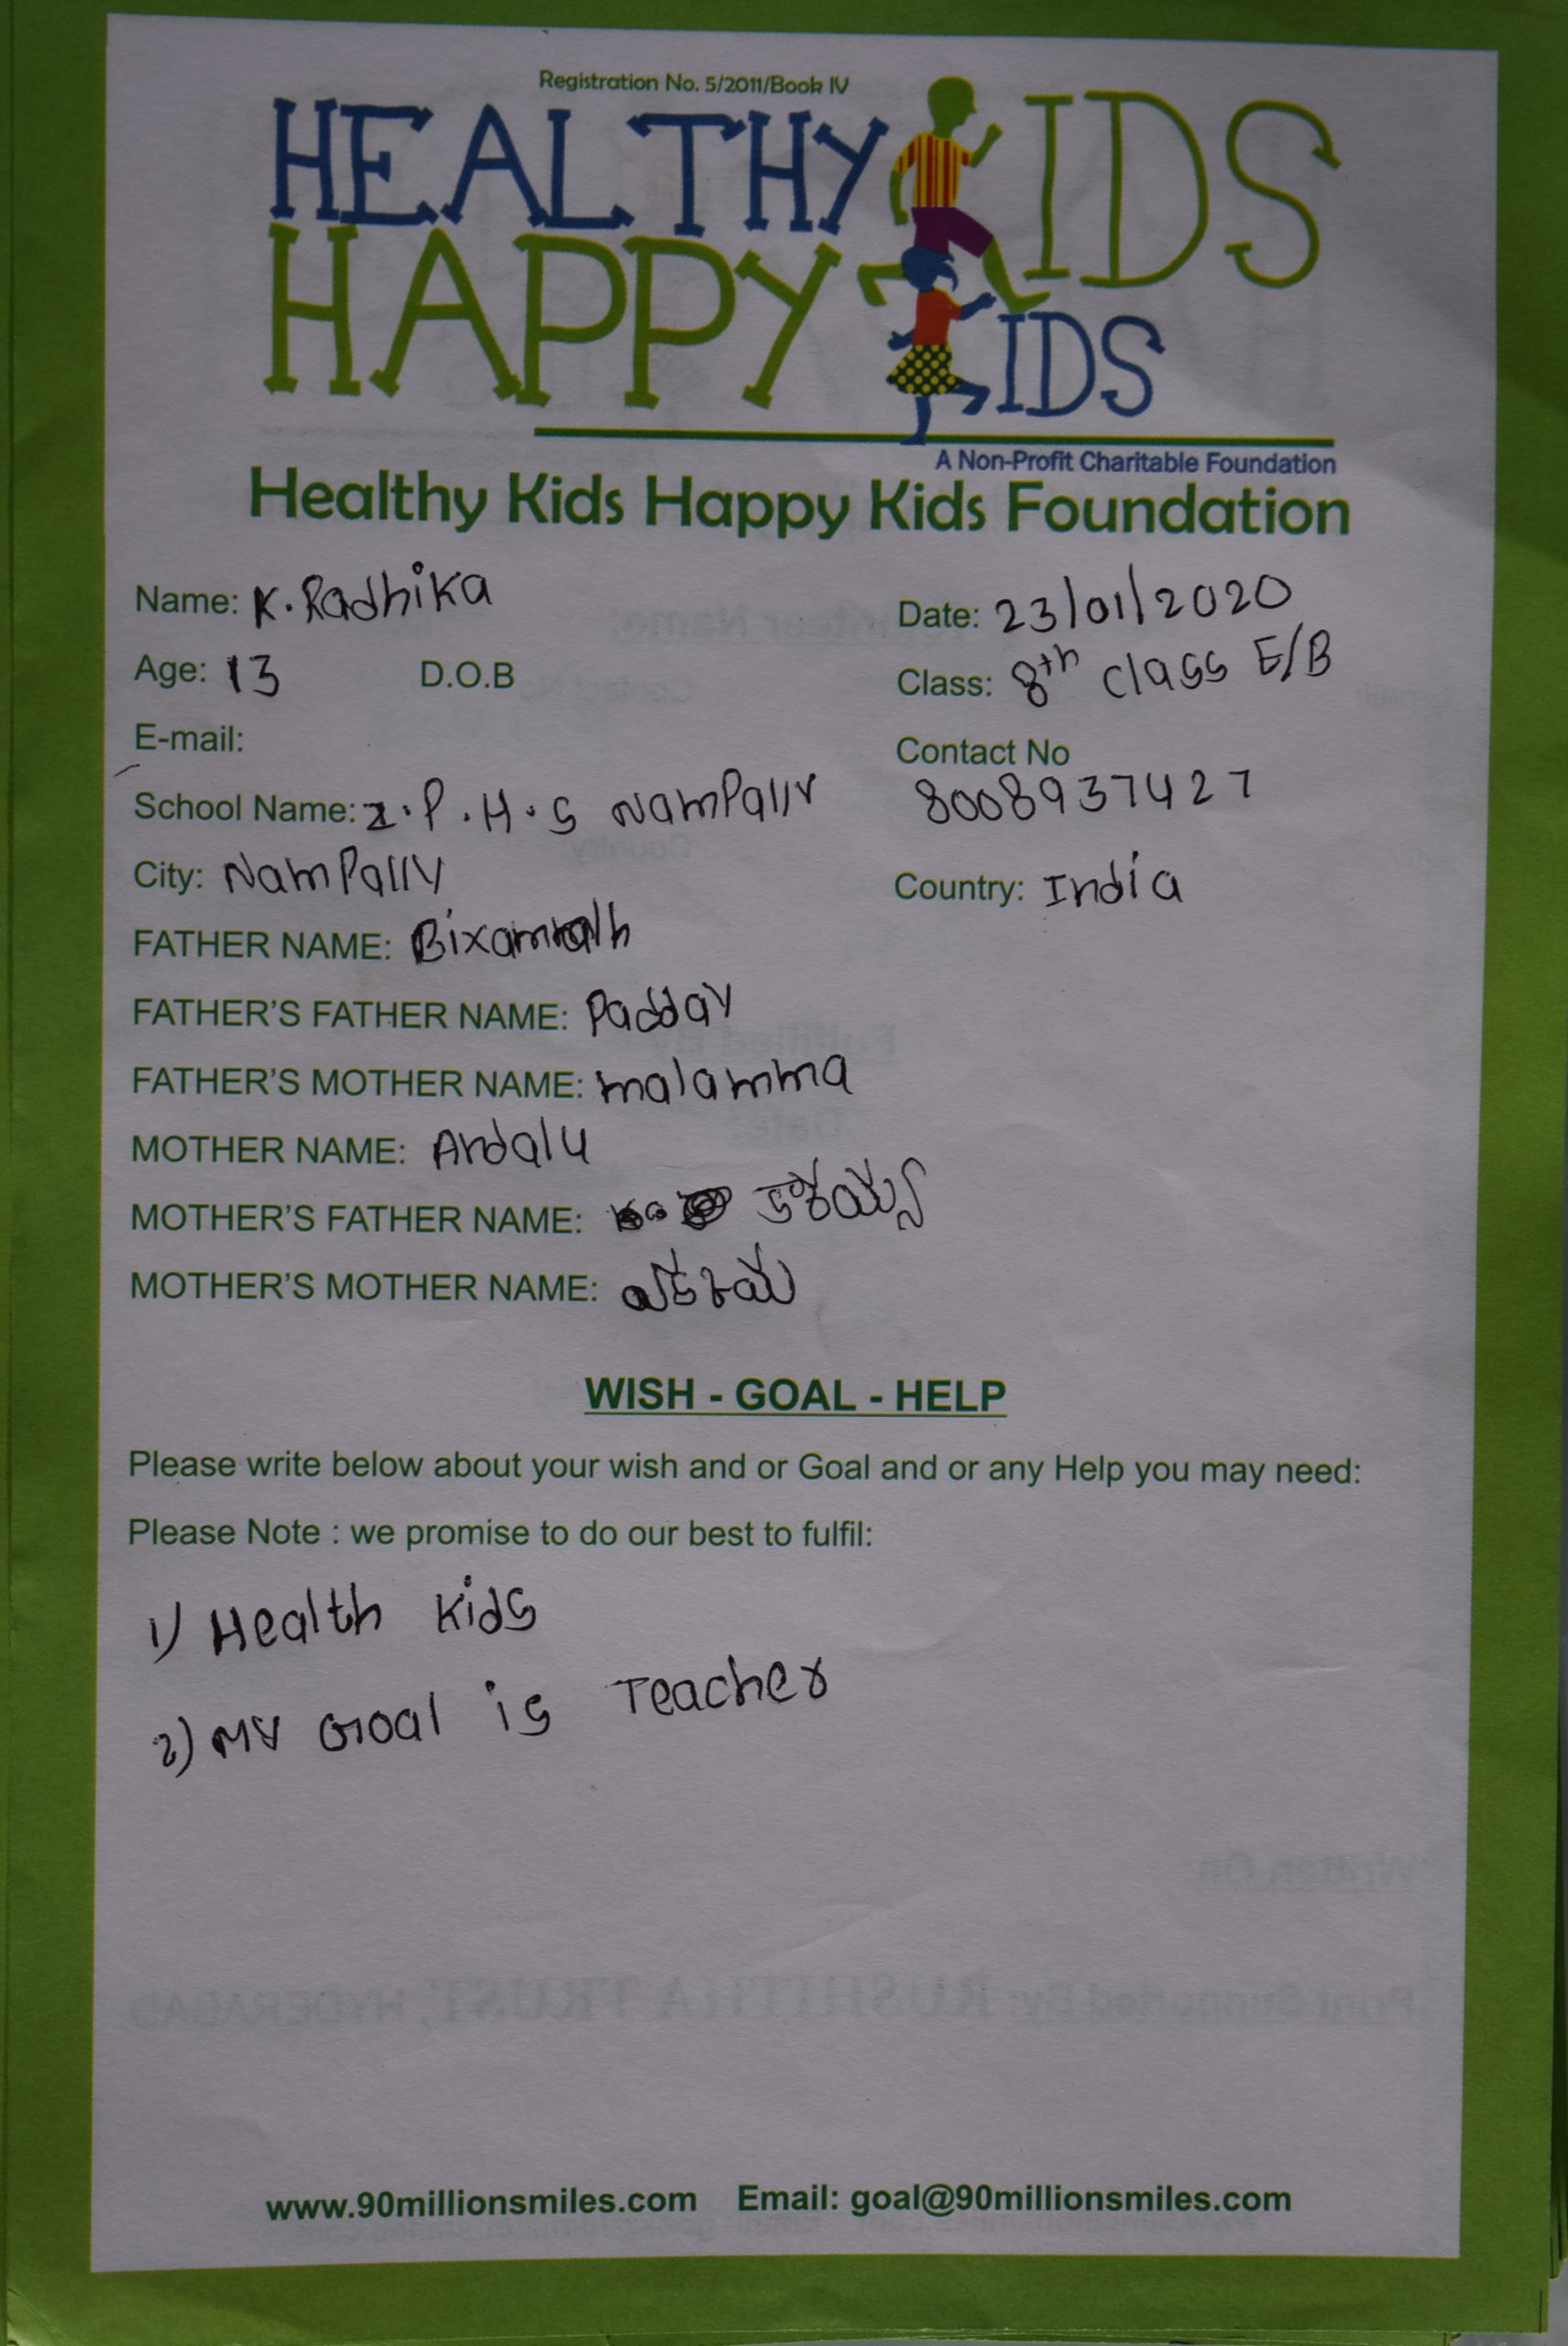 Registration No. 5/2011/Book IV
HEALTHY KIDS
HAPPY KIDS
A Non-Profit Charitable Foundation
Healthy Kids Happy Kids Foundation
Name: K. Radhika Date: 23/01/2020
Age: 13 D.O.B Class: 8th class E/B
E-mail: Contact No
School Name: Z.P.H.S Nampally 8008937427
City: Nampally Country: India
FATHER NAME:
FATHER'S FATHER NAME: Padday
FATHER'S MOTHER NAME: malamma
MOTHER NAME: Andalu
MOTHER'S FATHER NAME:
MOTHER'S MOTHER NAME:
WISH - GOAL - HELP
Please write below about your wish and or Goal and or any Help you may need:
Please Note : we promise to do our best to fulfil:
1) Health Kids
2) My Goal is Teacher
www.90millionsmiles.com Email: goal@90millionsmiles.com